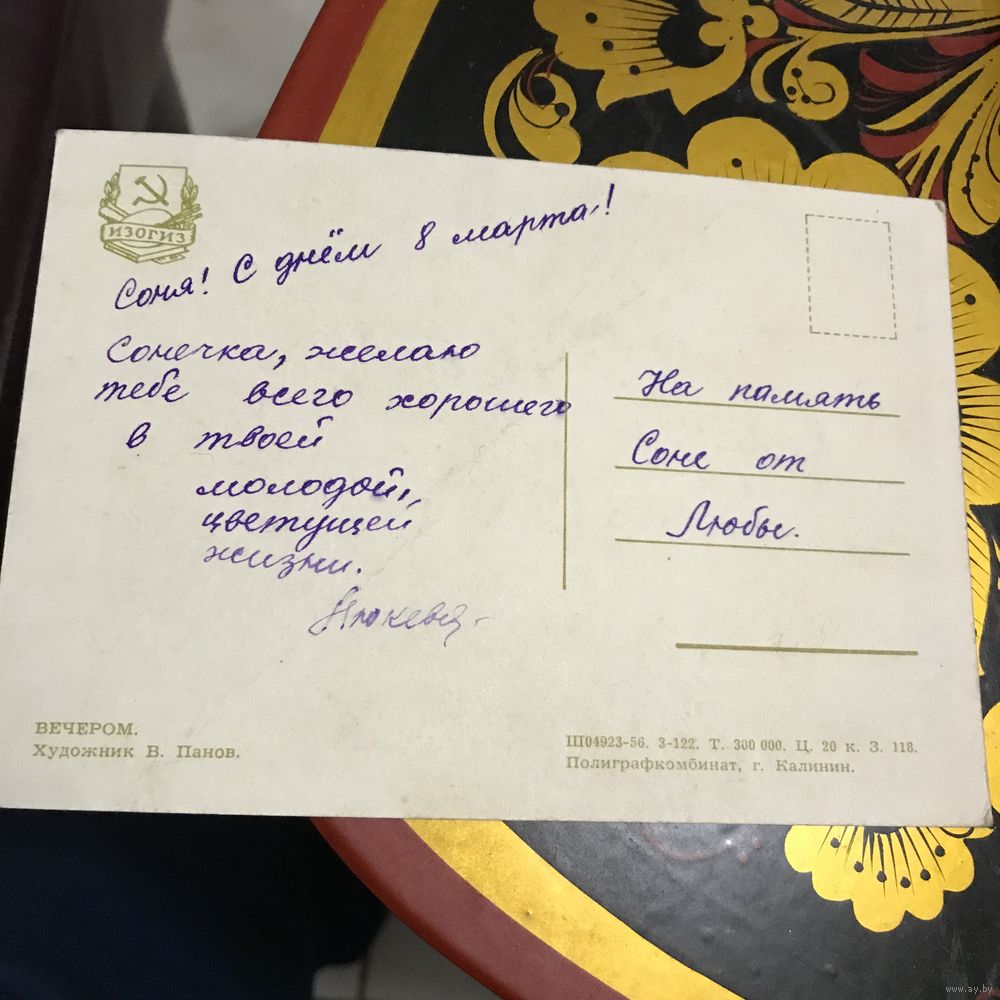 ИЗОГИЗ
Соня! С днём 8 марта!
Сонечка, желаю
тебе всего хорошего
в твоей
молодой,
цветущей
жизни.
На память
Соне от
Любы.
ВЕЧЕРОМ.
Художник В. Панов.
Ш04923-56. 3-122. Т. 300 000. Ц. 20 к. З. 118.
Полиграфкомбинат, г. Калинин.
www.ay.by